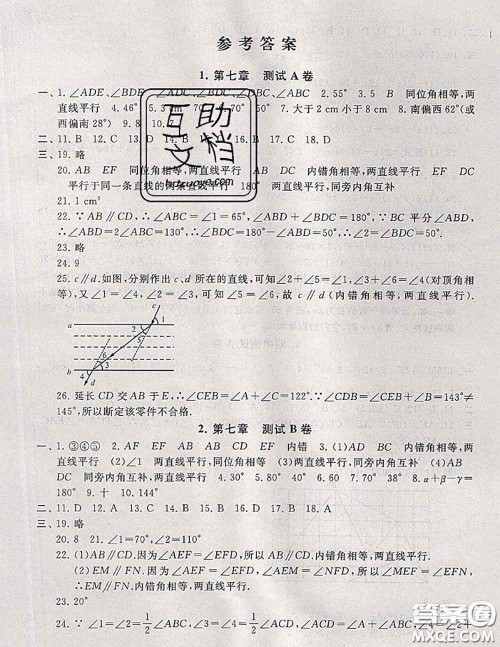 参考答案
1. 第七章 测试A卷
一、1. ∠ADE、∠BDE、∠BDC、∠ABC 2. 55° 3. 5 B 同位角相等,两
直线平行 4. 46° 5. 3 cm 7. 大于2 cm小于8 cm 8. 南偏西62°(或
西偏南28°) 9. 8 10.
二、11. B 12. C 13. D 14. B 16. C 17. C 18. D
三、19. 略
20. AB EF 同位角相等,两直线平行 AB DC 内错角相等,两直线平行
平行于同一条直线的两条直线平行 180° 两直线平行,同旁内角互补
21. 1 cm²
22. ∵AB∥CD,∴∠ABC=∠1=65°,∠ABD+∠BDC=180°. ∵BC平分∠ABD,
∴∠ABD=2∠ABC=130°,∴∠BDC=180°-∠ABD=50°,∴∠2=∠BDC=50°.
23. 略
24. 9
25. c∥d.如图,分别作出c、d所在的直线,可知∠2+∠5=∠1+∠6=∠4(对顶角相
等),又∠1=∠2,可知∠5=∠6,可知∠2=∠6,故c∥d(内错角相等,两直线平行).
a
b
c
d
1
2
3
4
5
6
26. 延长CD交AB于E,∴∠CEB=∠A+∠C=122°. ∴∠CDB=∠CEB+∠B=143°≠
145°,所以断定该零件不合格.
2. 第七章 测试B卷
一、1. ③④⑤ 2. AF EF AB AB CD EF 内错 3. (1)AD BC 内错角相等,两
直线平行 (2)∠1 两直线平行,同位角相等 (3)AB DC 两直线平行,同旁内角互补
(4)∠BCD 同旁内角互补,两直线平行 4. 38° 5. 40° 6. 60 7. 70° 38° 8. α+β-γ=
180° 9. 十 10. 144°
二、11. D 12. A 13. D 14. C 15. C 16. B 17. B 18. A
三、19. 略
20. 8 21. ∠1=70°,∠2=110°
22. (1)AB∥CD.因为∠AEF=∠EFD,所以AB∥CD.内错角相等,两直线平行.
(2)EM∥FN.因为∠AEF=∠EFD,∠AEM=∠NFD,所以∠MEF=∠EFN,所以
EM∥FN.内错角相等,两直线平行.
23. 20°
24. ∵∠1=∠2=1/2∠ACE,∠3=∠4=1/2∠ACD,∠ACE+∠ACD=180°,∴∠2+
互助文档
hdzuoye.com
答案圈
MXQE.COM